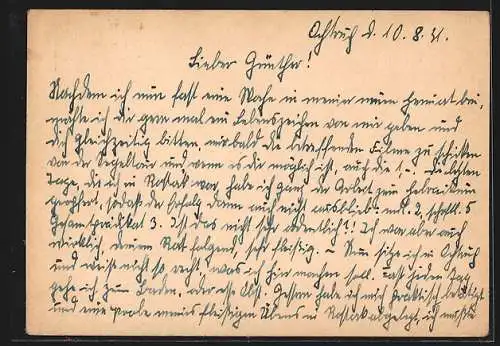 Ochtrup d. 10. 8. 31.
Lieber Günther!
Nachdem ich nun fast eine Woche in meiner neuen Heimat bin,
möchte ich dir gern mal ein Lebenszeichen von mir geben und
dich gleichzeitig bitten, mir bald die betreffenden Filme zu schicken
von der Segeltour und wenn es dir möglich ist, auch die 1,-. Die letzten
Tage, die ich in Rostock war, habe ich ganz der Arbeit zum
geopfert, sodaß der Erfolg dann auch nicht ausblieb: m. 2, schriftl. 3
Gesamtprädikat 3. Ist das nicht sehr ordentlich?! Ich war aber auch
wirklich, deinem Rat folgend, sehr fleißig. – Nun sitze ich in Ochtrup
und weiß nicht so recht was ich hier machen soll. Fast jeden Tag
gehe ich zum Baden, oder esse Obst. Gestern habe ich mich praktisch betätigt
und eine Probe meines fleißigen Übens in Rostock abgelegt, ich mußte